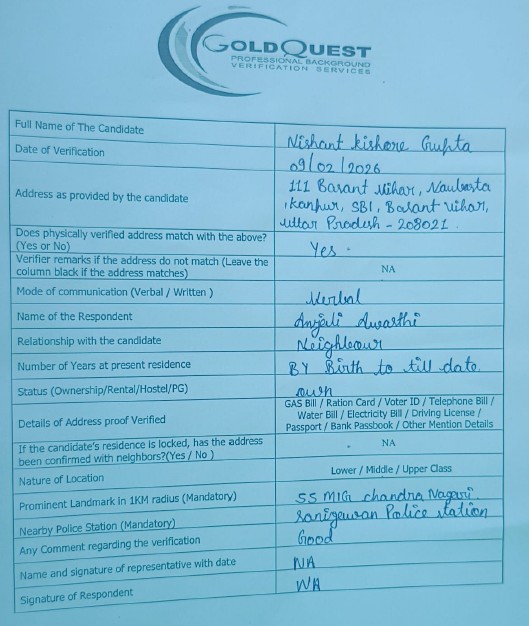 GOLDQUEST
PROFESSIONAL BACKGROUND
VERIFICATION SERVICES
Full Name of The Candidate
Nishant Kishore Gupta
Date of Verification
09/02/2026
Address as provided by the candidate
111 Basant Vihar, Naubasta
, Kanpur, SBI, Basant Vihar,
Uttar Pradesh - 208021
Does physically verified address match with the above?
(Yes or No)
Yes -
Verifier remarks if the address do not match (Leave the
column black if the address matches)
NA
Mode of communication (Verbal / Written )
Verbal
Name of the Respondent
Anjali Awasthi
Relationship with the candidate
Neighbour
Number of Years at present residence
BY Birth to till date.
Status (Ownership/Rental/Hostel/PG)
own
Details of Address proof Verified
GAS Bill / Ration Card / Voter ID / Telephone Bill /
Water Bill / Electricity Bill / Driving License /
Passport / Bank Passbook / Other Mention Details
If the candidate's residence is locked, has the address
been confirmed with neighbors?(Yes / No )
NA
Nature of Location
Lower / Middle / Upper Class
Prominent Landmark in 1KM radius (Mandatory)
55 MIG Chandra Nagari.
Nearby Police Station (Mandatory)
Sanigawan Police station
Any Comment regarding the verification
Good
Name and signature of representative with date
NA
Signature of Respondent
NA